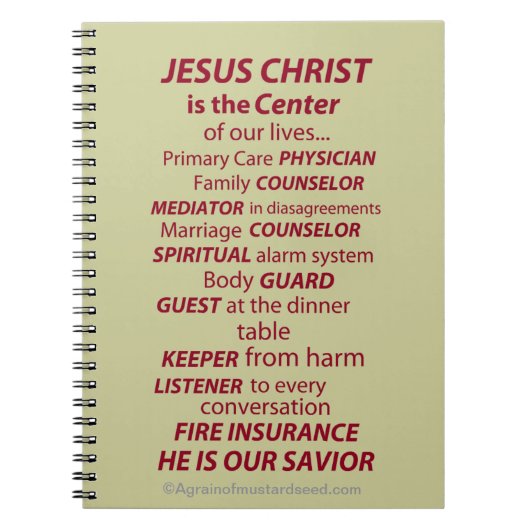 JESUS CHRIST
is the Center
of our lives...
Primary Care PHYSICIAN
Family COUNSELOR
MEDIATOR in diasagreements
Marriage COUNSELOR
SPIRITUAL alarm system
Body GUARD
GUEST at the dinner
table
KEEPER from harm
LISTENER to every
conversation
FIRE INSURANCE
HE IS OUR SAVIOR
©Agrainofmustardseed.com